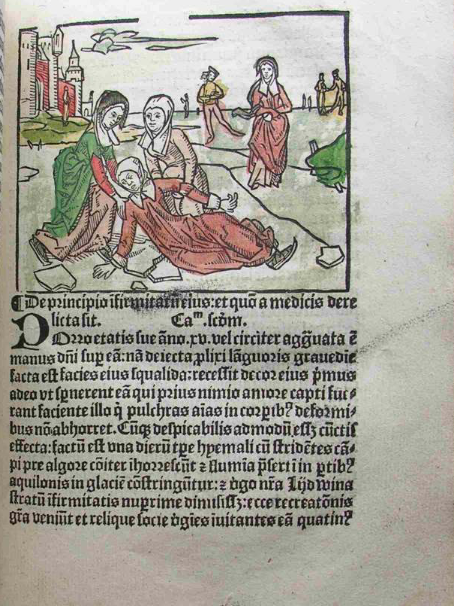 ¶ De principio īfirmitatū eius: et quō a medicis dere
licta sit. Ca^m. scdm.
POrro etatis sue āno .xv. vel circiter aggͣuata ē
manus dn̄i sup eā: nā deiecta plixi lāguoris grauedīe
facta est facies eius squalida: recessit decor eius p̄mus
adeo vt sp̱nerent eā qui prius nimio amore capti fue-
rant faciente illo q̇ pulchras aīas in corpibꝰ deformi-
bus nō abhorret. Cūqꝫ despicabilis admodū essꝫ cūctis
effecta: factū est vna dierū tꝑe hyemali cū stridētes cā-
pi pre algore cōiter īhorrescūt ⁊ flumīa p̄sertī in ptibꝰ
aquilonis in glaciē cōstringūtur: ⁊ v̇go nr̄a Lijdwina
stratū īfirmitatis nuprime dimisissꝫ: ecce recreatōnis
gr̄a veniūt et relique socie v̇gīes iuitantes eā quatinꝰ